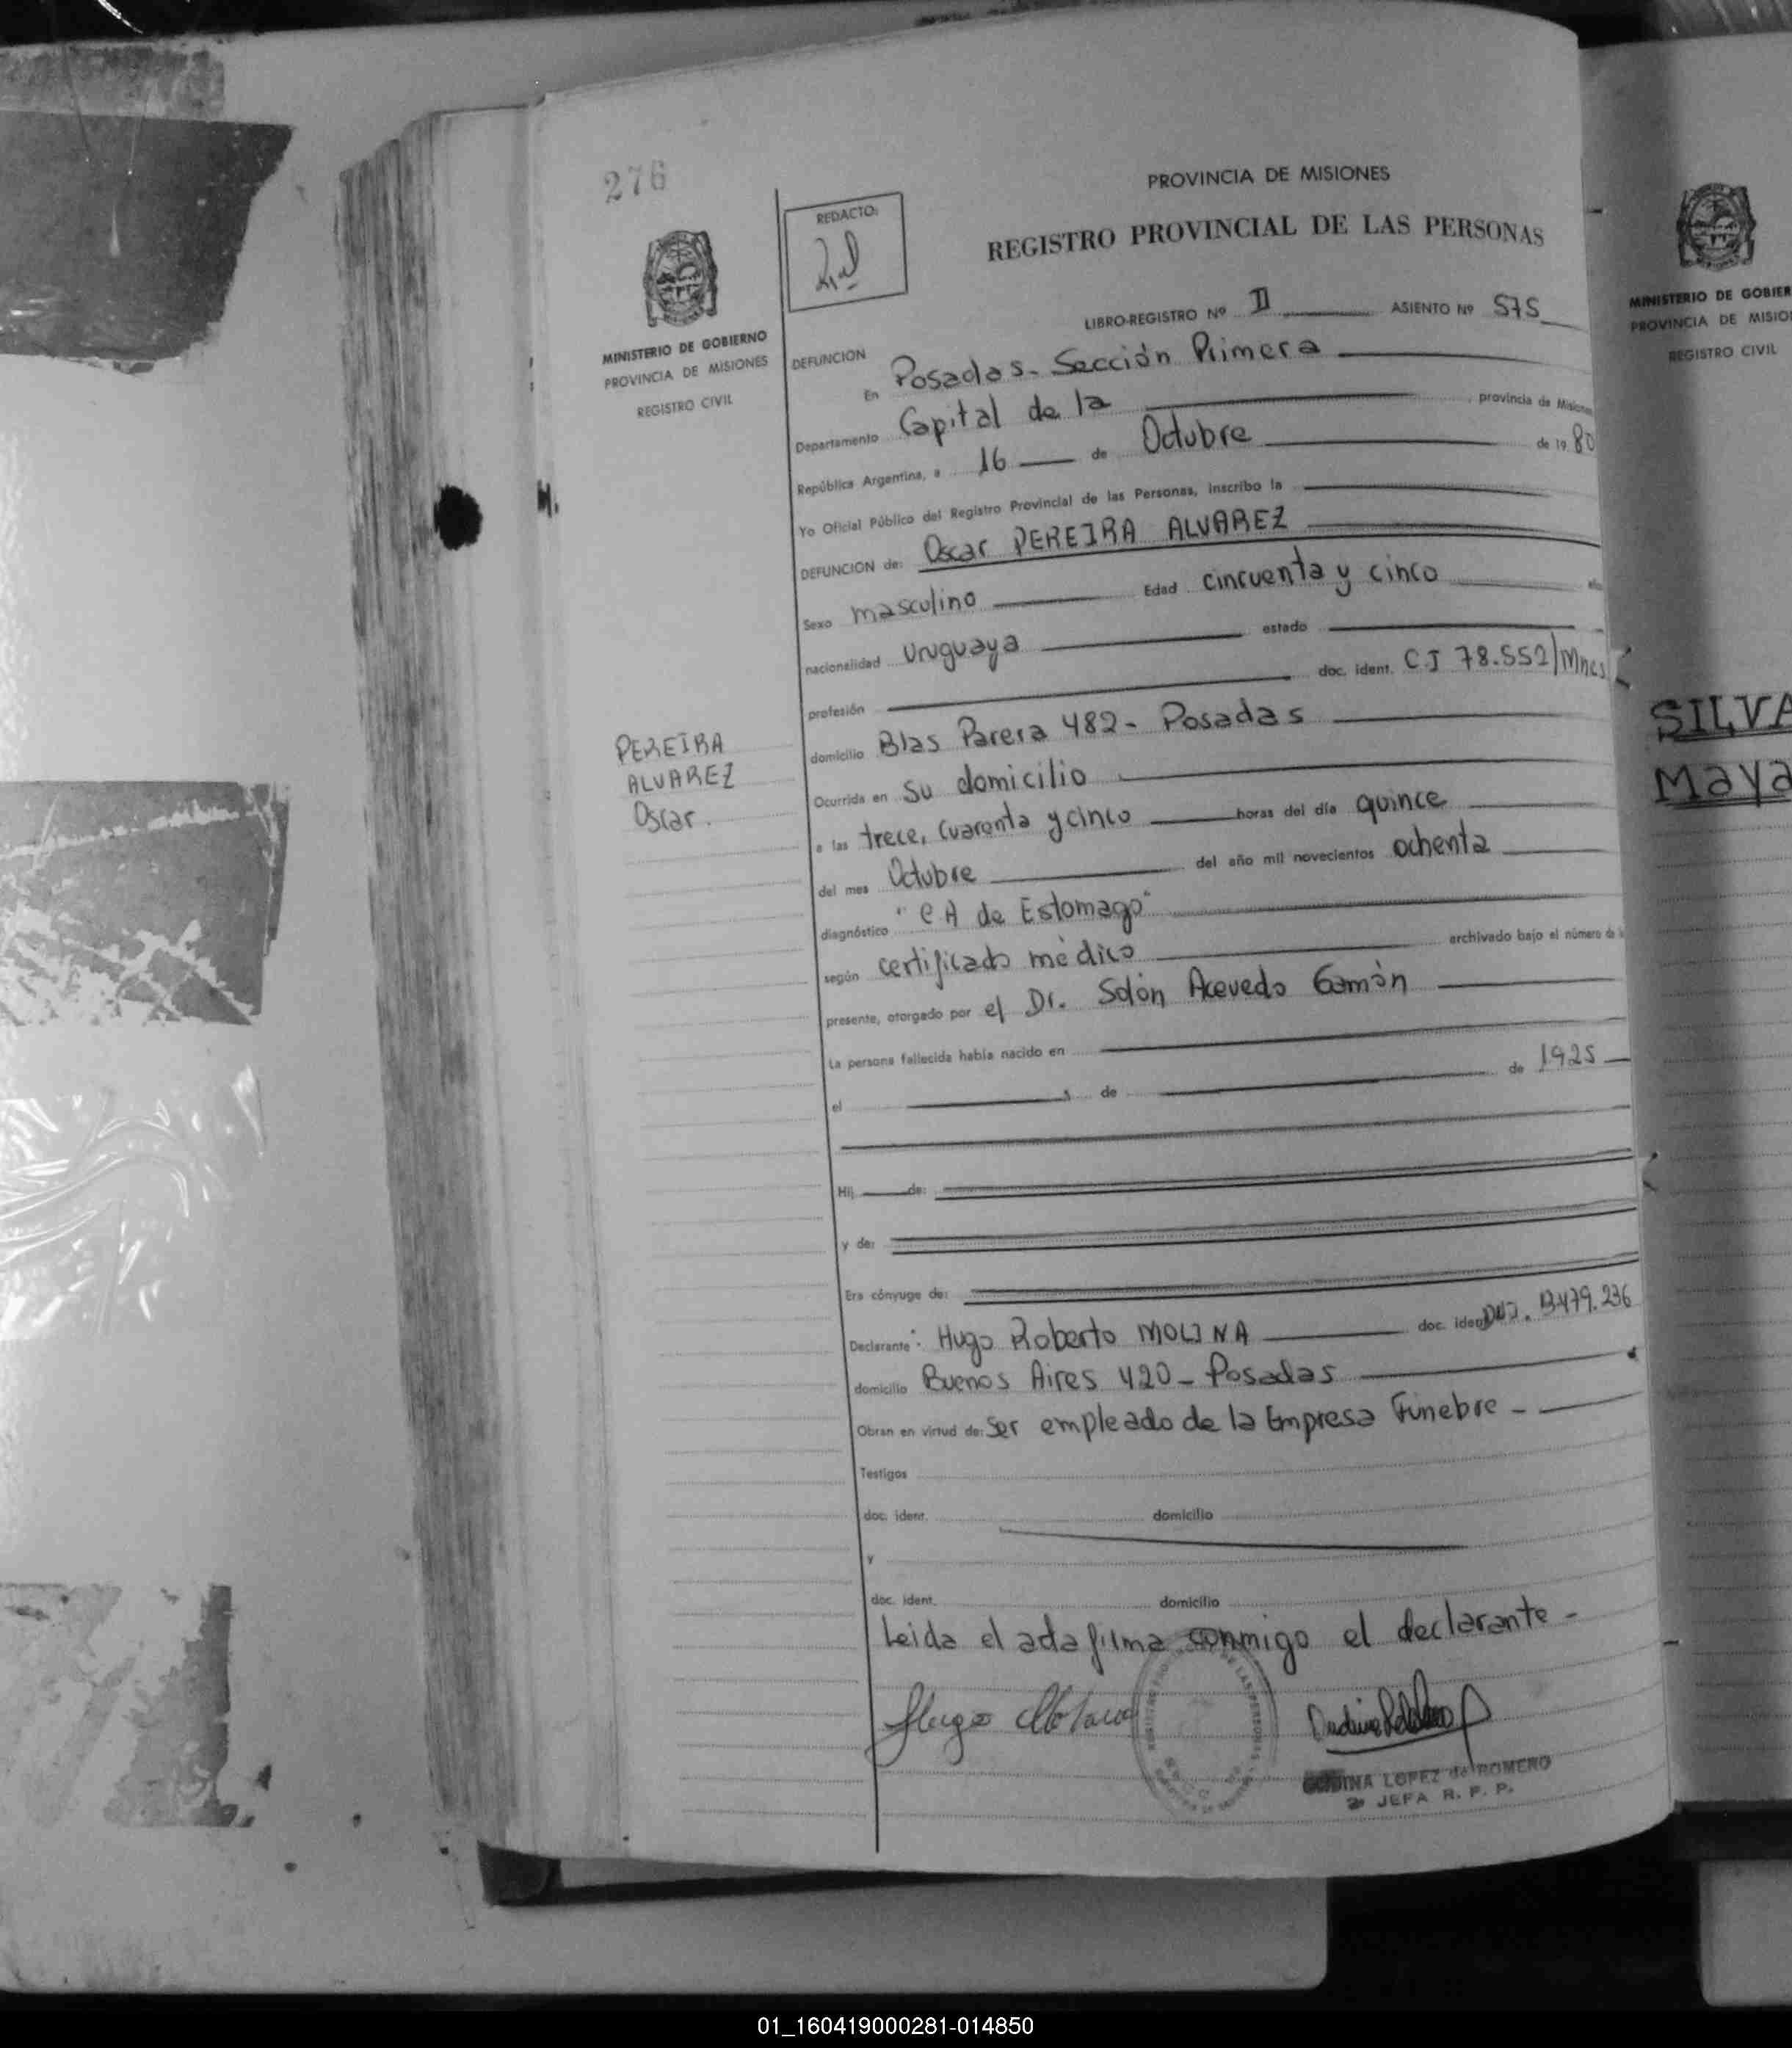 276
PROVINCIA DE MISIONES
REDACTO:
REGISTRO PROVINCIAL DE LAS PERSONAS
MINISTERIO DE GOBIERNO
PROVINCIA DE MISIONES
REGISTRO CIVIL
LIBRO-REGISTRO Nº II ASIENTO Nº 575
DEFUNCION
En Posadas - Sección Primera
Departamento Capital de la provincia de Misiones
República Argentina, a 16 de Octubre de 19 80
Yo Oficial Público del Registro Provincial de las Personas, inscribo la
DEFUNCION de: Oscar PEREIRA ALVAREZ
Sexo masculino Edad cincuenta y cinco
nacionalidad Uruguaya estado
profesión doc. ident. C.I 78.552/Mnes
domicilio Blas Parera 482 - Posadas
PEREIRA
ALVAREZ
Oscar.
Ocurrida en su domicilio
a las trece, cuarenta y cinco horas del día quince
del mes Octubre del año mil novecientos ochenta
diagnóstico "CA de Estomago"
según certificado médico archivado bajo el número de
presente, otorgado por el Dr. Solón Acevedo
La persona fallecida había nacido en
el de de 1925
Hij de:
y de:
Era cónyuge de:
Declarante: Hugo Roberto MOLINA doc. ident 13.479.236
domicilio Buenos Aires 420 - Posadas
Obran en virtud de: Ser empleado de la Empresa Fúnebre -
Testigos
doc. ident. domicilio
y
doc. ident. domicilio
Leida el acta firma conmigo el declarante -
Hugo Molina
LOPEZ de ROMERO
JEFA R. P. P.
MINISTERIO DE GOBIER
PROVINCIA DE MISIO
REGISTRO CIVIL
SILVA
Maya
01_160419000281-014850